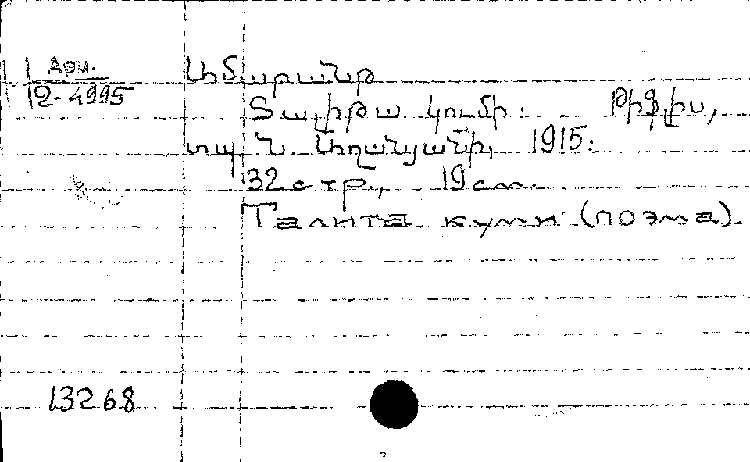 Арм.
2-4995
Ամարանթ
Տալիթա կումի: Թիֆլիս,
տպ Ն. Աղանյանի, 1915:
32 стр., 19 см.
Талита куми (поэма).
13268